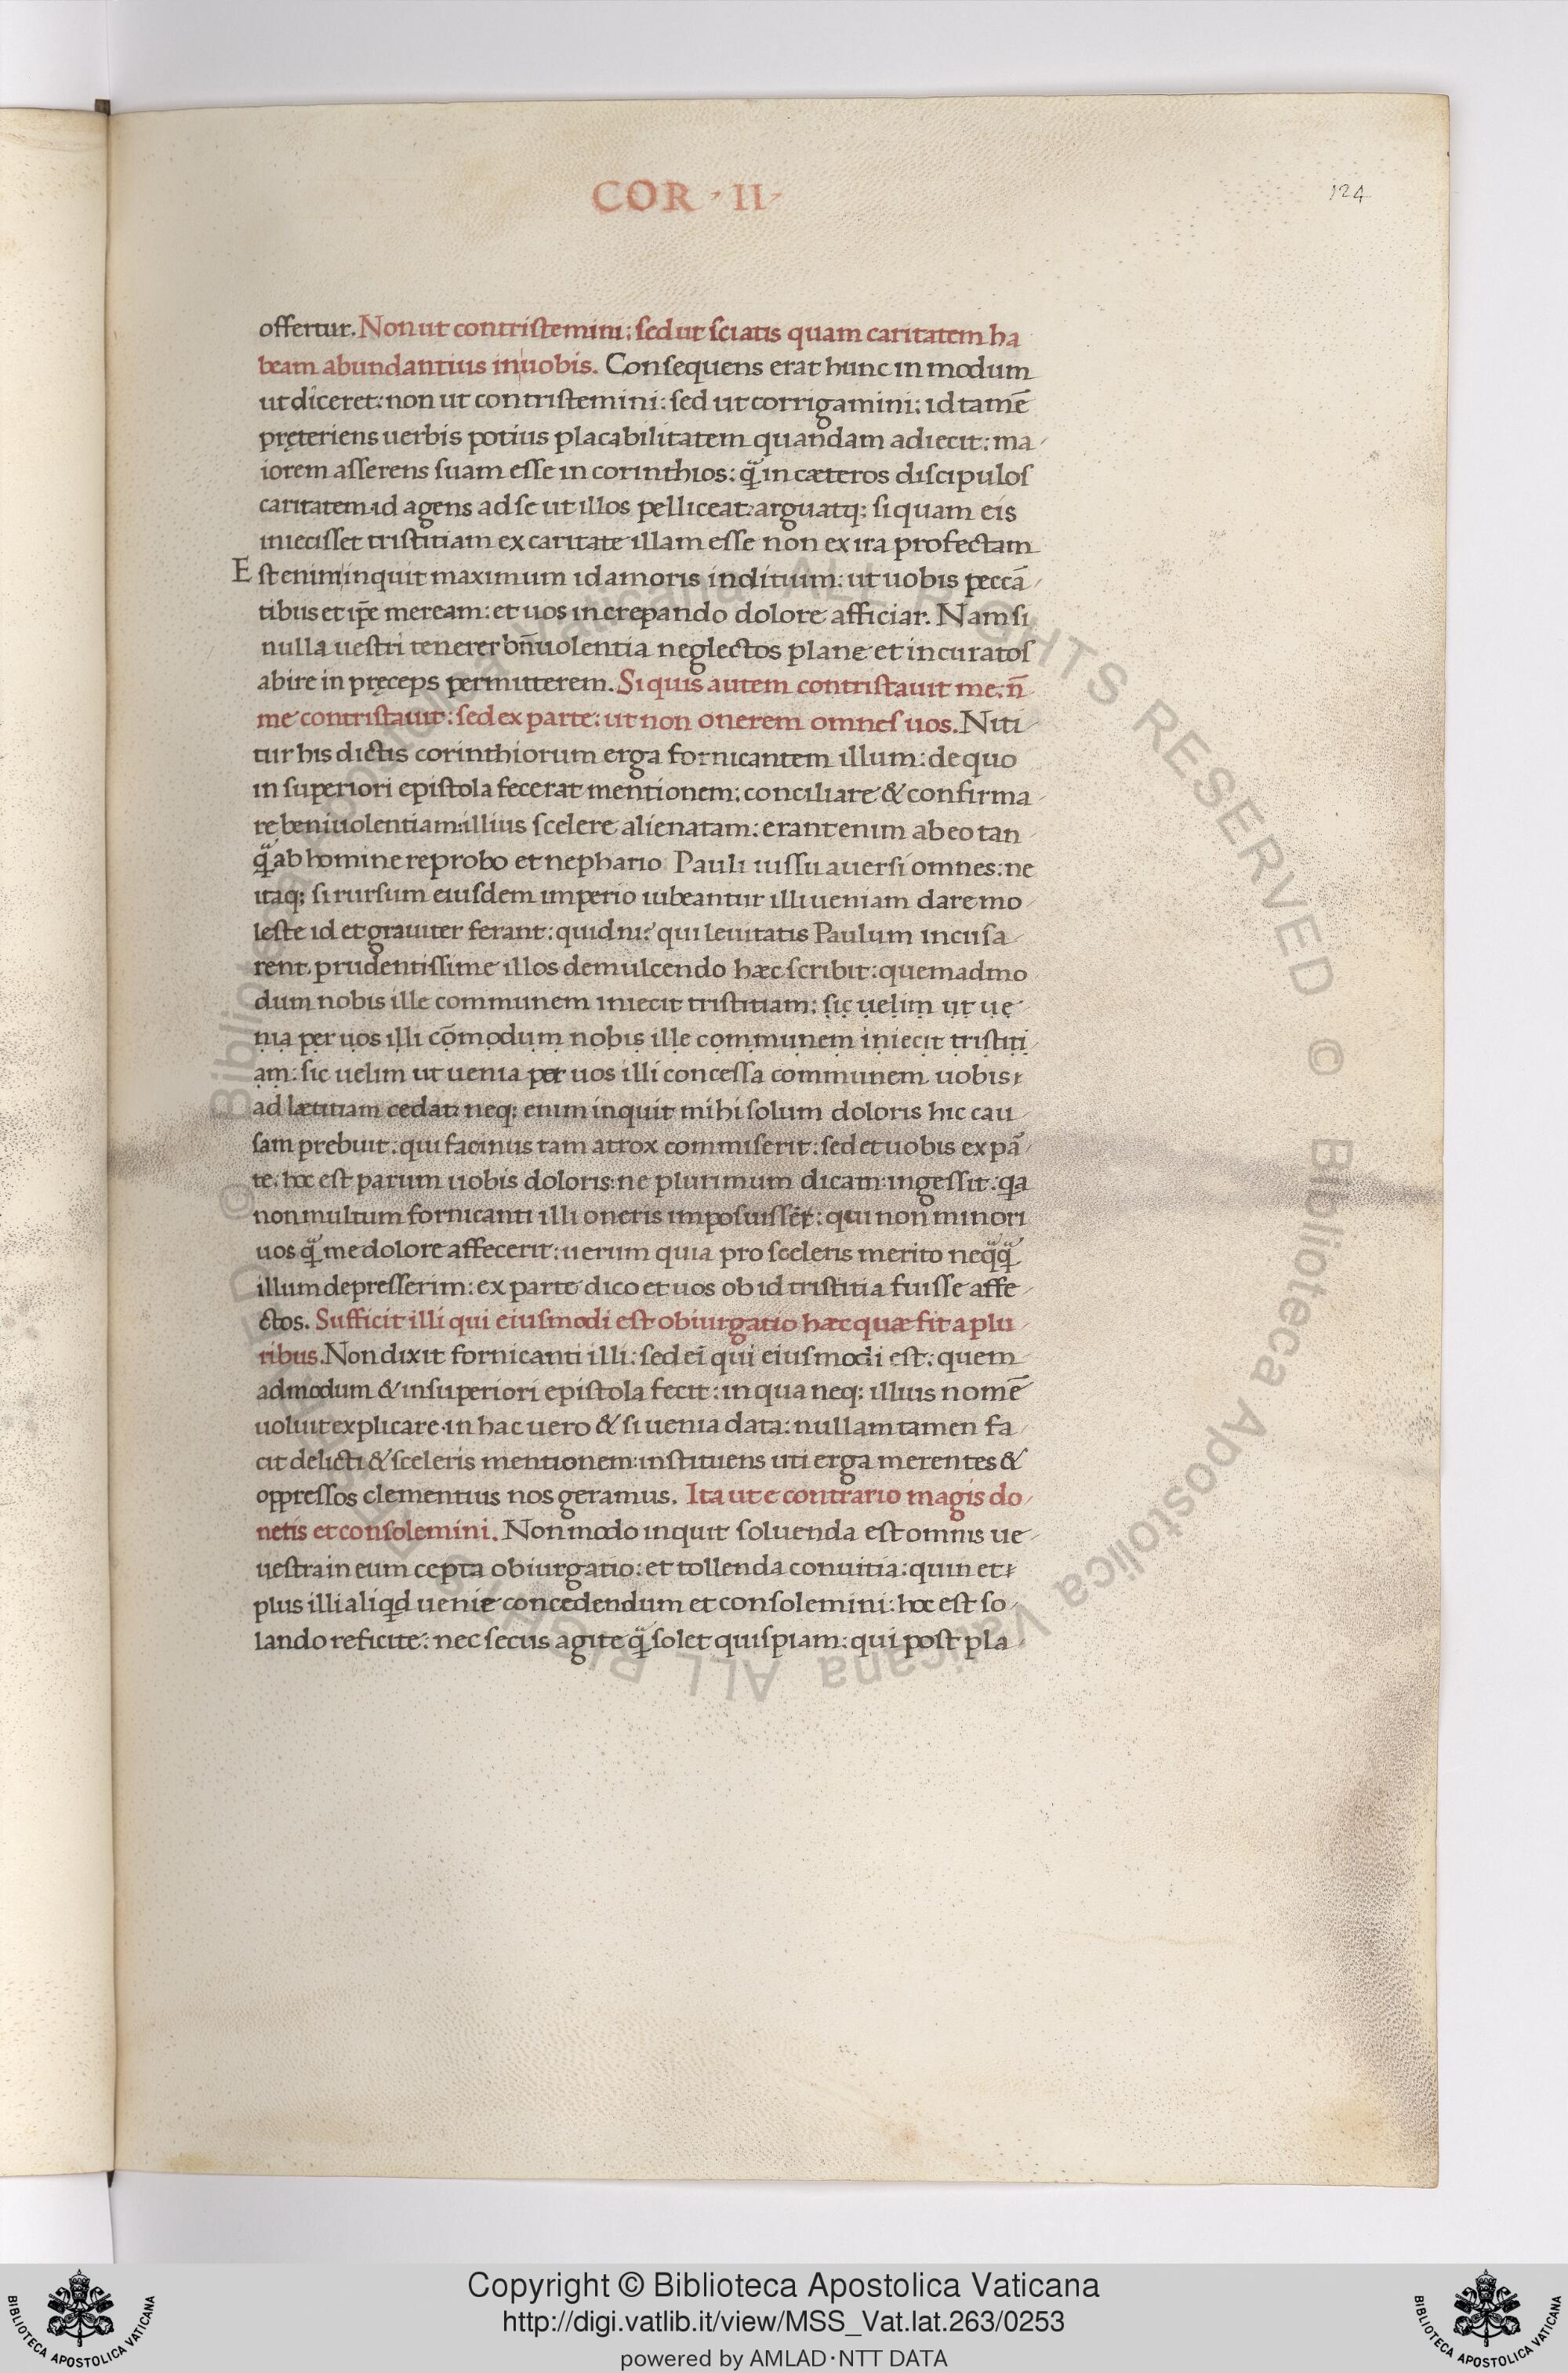 COR · II ·
124
offertur. Non ut contristemini: sed ut sciatis quam caritatem ha
beam abundantius in uobis. Consequens erat hunc in modum
ut diceret: non ut contristemini: sed ut corrigamini: id tamē
pręteriens uerbis potius placabilitatem quandam adiecit: ma
iorem asserens suam esse in corinthios: q̃ in cæteros discipulos
caritatem id agens ad se ut illos pelliceat: arguatq; si quam eis
iniecisset tristitiam ex caritate illam esse non ex ira profectam
Est enim inquit maximum id amoris indituum: ut uobis peccā
tibus et ip̄e meream: et uos increpando dolore afficiar. Nam si
nulla uestri tenerer bn̄uolentia neglectos plane et incuratos
abire in pręceps permitterem. Si quis autem contristauit me: n̄
me contristauit: sed ex parte: ut non onerem omnes uos. Niti
tur his dictis corinthiorum erga fornicantem illum: de quo
in superiori epistola fecerat mentionem: conciliare & confirma
re beniuolentiam: illius scelere alienatam: erant enim ab eo tan
q̃ ab homine reprobo et nephario Pauli iussu auersi omnes: ne
itaq; si rursum eiusdem imperio iubeantur illi ueniam dare mo
leste id et grauiter ferant: quid ni? qui leuitatis Paulum incusa
rent. prudentissime illos demulcendo hæc scribit: quemadmo
dum nobis ille communem iniecit tristitiam: sic uelim ut ue
nia per uos illi cōmodum nobis ille communem iniecit tristiti
am: sic uelim ut uenia per uos illi concessa communem uobis
ad lætitiam cedat: neq; enim inquit mihi solum doloris hic cau
sam prebuit: qui facinus tam atrox commiserit: sed et uobis ex pā
te. hoc est parum uobis doloris: ne plurimum dicam: ingessit: qa
non multum fornicanti illi oneris imposuisset: qui non minori
uos q̃ me dolore affecerit: uerum quia pro sceleris merito neq̃q̃
illum depresserim: ex parte dico et uos ob id tristitia fuisse affe
ctos. Sufficit illi qui eiusmodi est obiurgatio hæc quæ fit a plu
ribus. Non dixit fornicanti illi: sed ei qui eiusmodi est: quem
admodum & in superiori epistola fecit: in qua neq; illius nomē
uoluit explicare. in hac uero & si uenia data: nullam tamen fa
cit delicti & sceleris mentionem: instituens uti erga merentes &
oppressos clementius nos geramus. Ita ut e contrario magis do
netis et consolemini. Non modo inquit soluenda est omnis ue
uestra in eum cepta obiurgatio: et tollenda conuitia: quin et
plus illi aliqd uenie concedendum et consolemini: hoc est so
lando reficite: nec secus agite q̃ solet quispiam: qui post pla
© Biblioteca Apostolica Vaticana ALL RIGHTS RESERVED
© Biblioteca Apostolica Vaticana ALL RIGHTS RESERVED
Copyright © Biblioteca Apostolica Vaticana
http://digi.vatlib.it/view/MSS_Vat.lat.263/0253
powered by AMLAD·NTT DATA
BIBLIOTECA APOSTOLICA VATICANA
BIBLIOTECA APOSTOLICA VATICANA